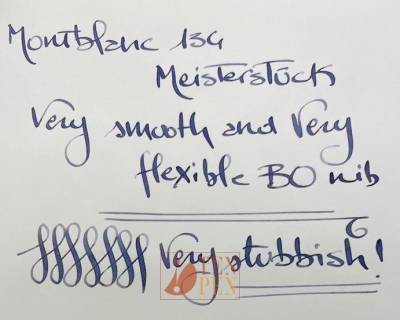 Montblanc 134
Meisterstück
Very smooth and Very
flexible BO nib
Very stubbish!